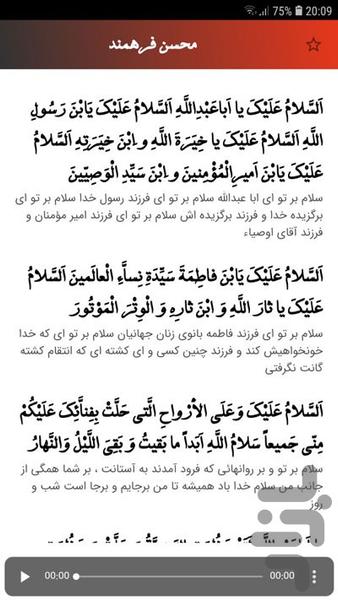 75% 20:09
محسن فرهمند
اَلسَّلامُ عَلَيْكَ يا اَباعَبْدِاللَّهِ اَلسَّلامُ عَلَيْكَ يَابْنَ رَسُولِ
اللَّهِ اَلسَّلامُ عَلَيْكَ يا خِيَرَةَ اللَّهِ و َابْنَ خِيَرَتِهِ اَلسَّلامُ
عَلَيْكَ يَابْنَ اَميرِالْمُؤْمِنينَ و َابْنَ سَيِّدِ الْوَصِيّينَ
سلام بر تو ای ابا عبدالله سلام بر تو ای فرزند رسول خدا سلام بر تو ای
برگزیده خدا و فرزند برگزیده اش سلام بر تو ای فرزند امیر مؤمنان و
فرزند آقای اوصیاء
اَلسَّلامُ عَلَيْكَ يَابْنَ فاطِمَةَ سَيِّدَةِ نِساَّءِ الْعالَمينَ اَلسَّلامُ
عَلَيْكَ يا ثارَ اللَّهِ و َابْنَ ثارِهِ و َالْوِتْرَ الْمَوْتُورَ
سلام بر تو ای فرزند فاطمه بانوی زنان جهانیان سلام بر تو ای که خدا
خونخواهیش کند و فرزند چنین کسی و ای کشته ای که انتقام کشته
گانت نگرفتی
اَلسَّلامُ عَلَيْكَ وَعَلَى الاَْرْواحِ الَّتى حَلَّتْ بِفِناَّئِكَ عَلَيْكُمْ
مِنّى جَميعاً سَلامُ اللَّهِ اَبَداً ما بَقيتُ وَ بَقِىَ اللَّيْلُ وَالنَّهارُ
سلام بر تو و بر روانهائی که فرود آمدند به آستانت ، بر شما همگی از
جانب من سلام خدا باد همیشه تا من برجایم و برجا است شب و
روز
00:00 00:00